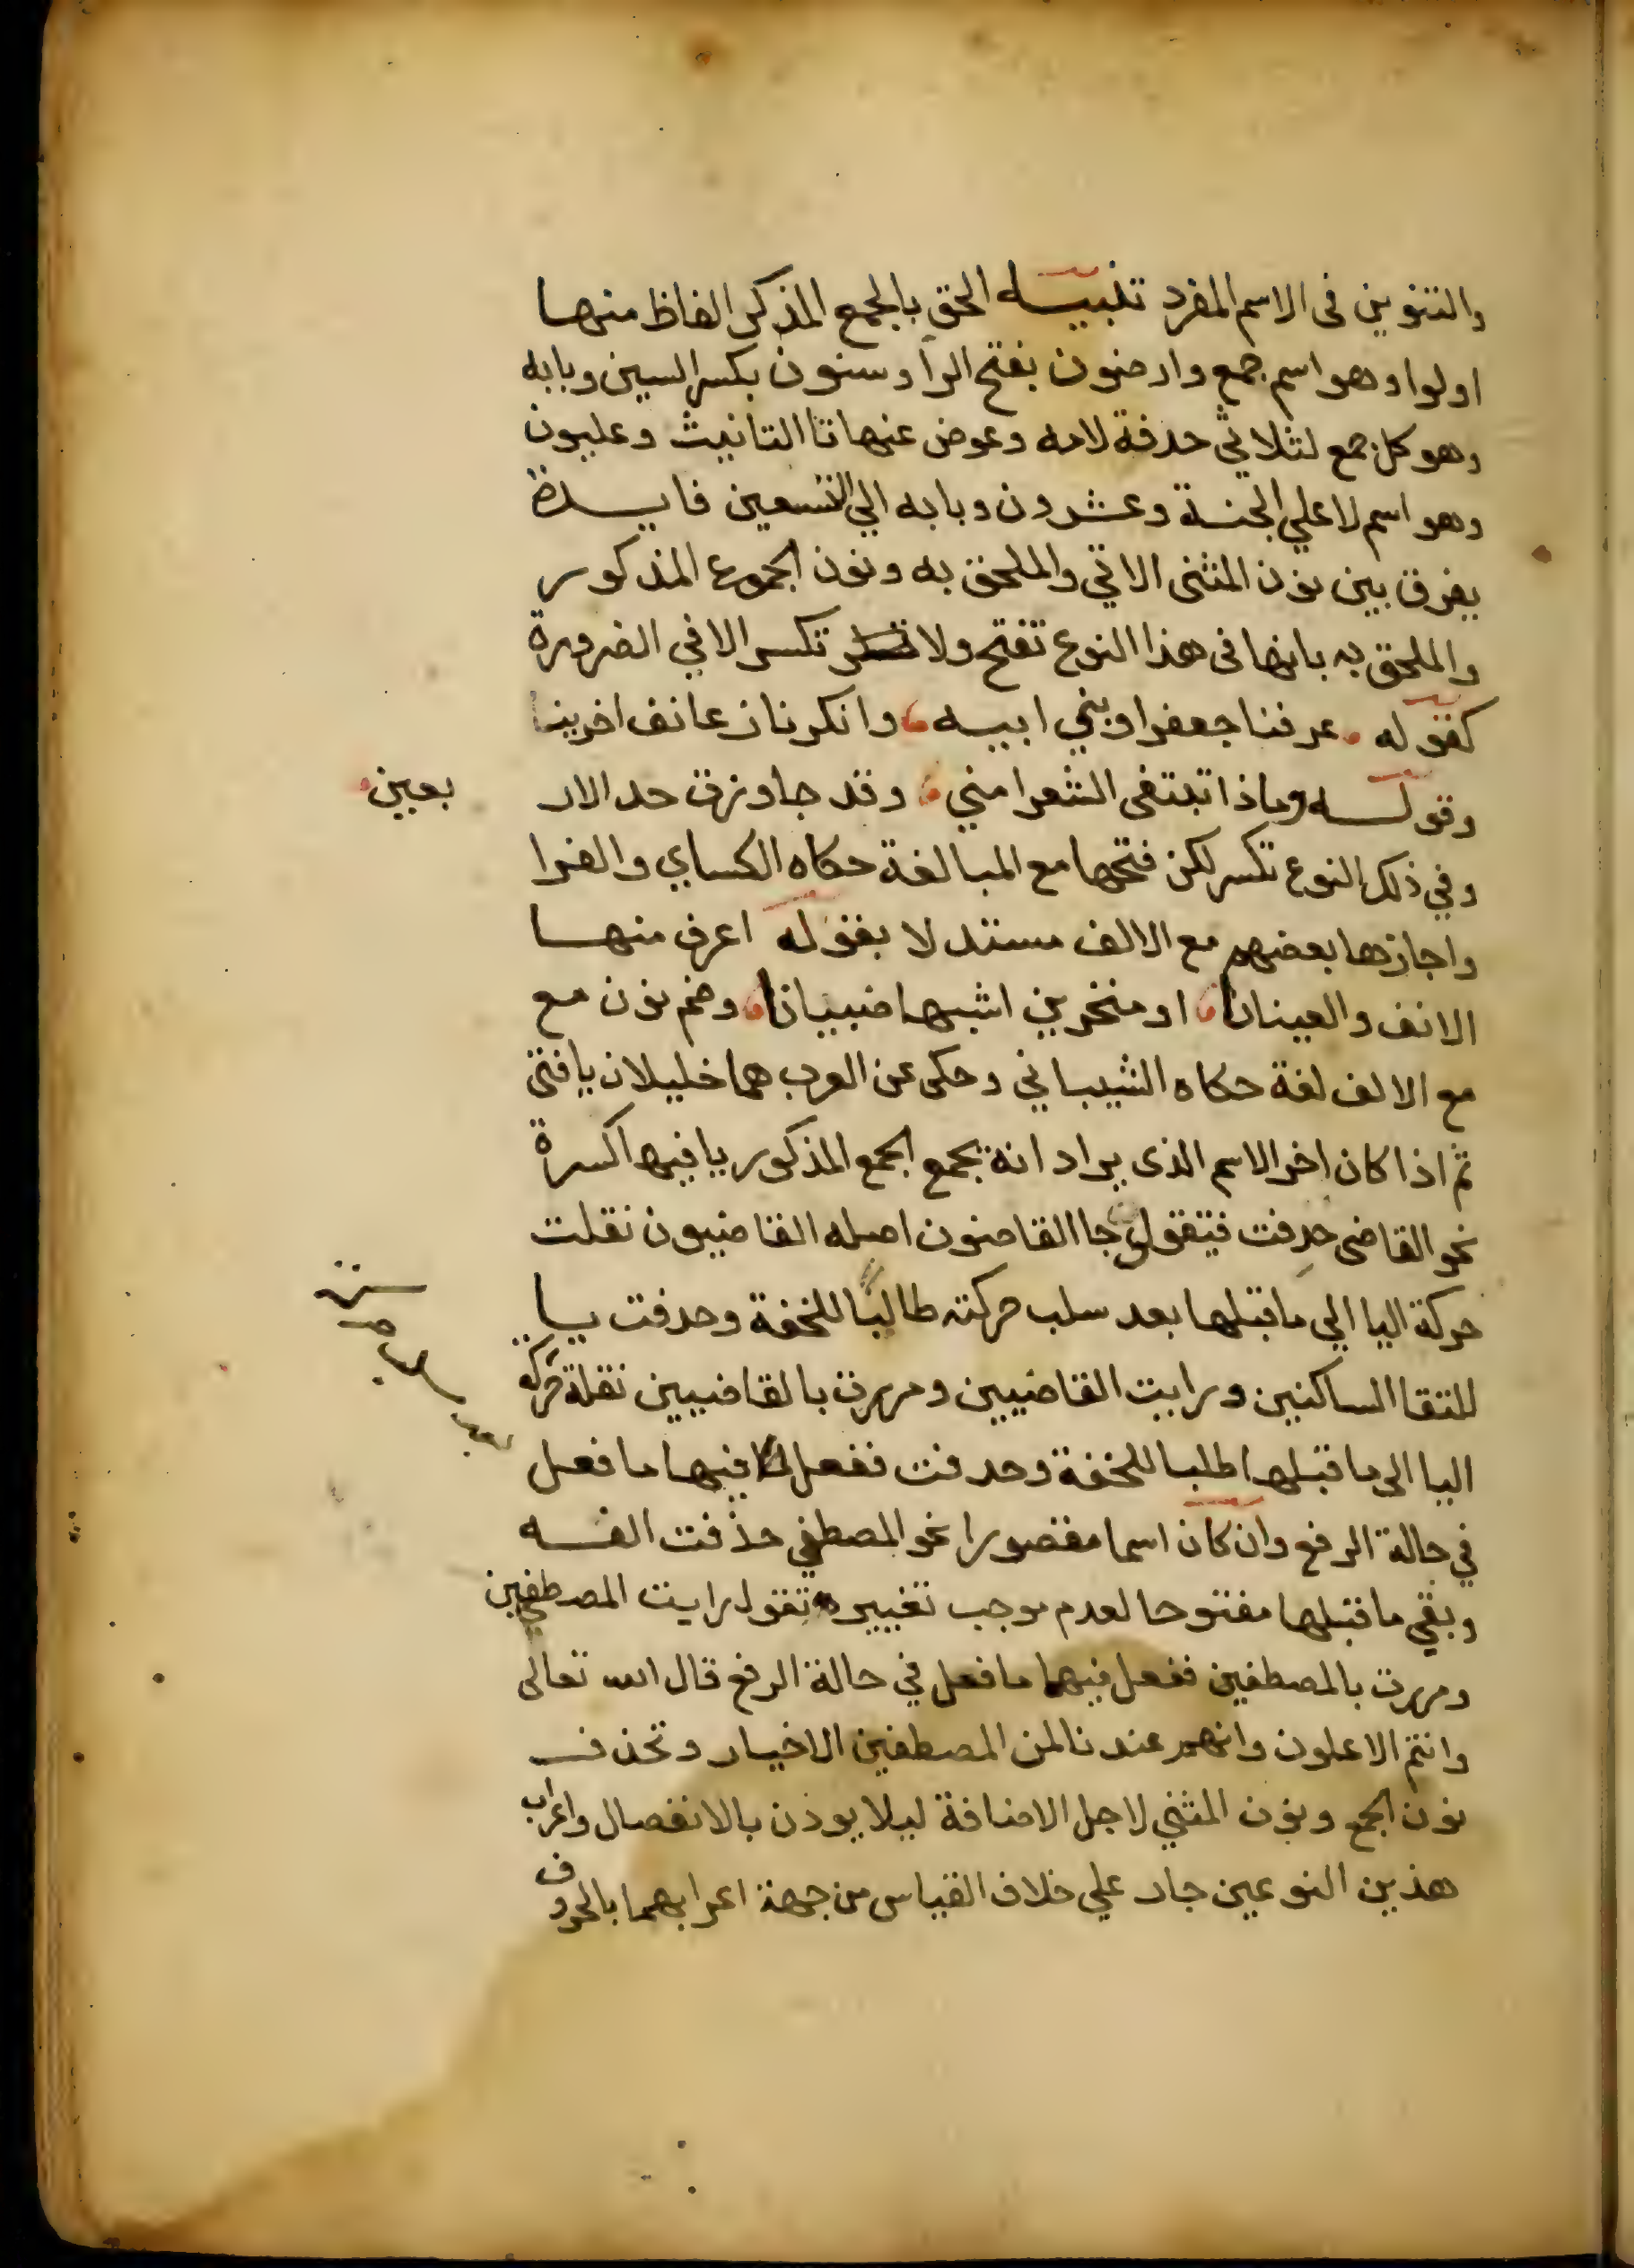 والتنوين في الاسم المفرد تنبيـــه الحق بالجمع المذكر الفاظ منها
اولوا وهو اسم جمع وارضون بفتح الرا وسنون بكسر السين وبابه
وهو كل جمع لثلاثي حدفة لامه وعوض عنها تا التانيث وعليون
وهو اسم لاعلي الجنة وعشرون وبابه الي التسعين فايـــدة
يفرق بين نون المثنى الاتي والملحق به ونون الجموع المذكور
والملحق به بانها في هذا النوع تفتح ولا تكسر الا في الضرورة
كقوله عرفنا جعفرا وبني ابيه وانكرنا زعانف اخرينا
وقولـــه وماذا تبتغى الشعرا مني وقد جاوزت حد الار بعين
وفي ذلك النوع تكسر لكن فتحها مع المبالغة حكاه الكساي والفرا
واجازها بعضهم مع الالف مستدلا بقوله اعرف منهـــا
الانف والعينانا او منخرين اشبها ضبيانا وضم نون مع
مع الالف لغة حكاه الشيباني وحكى عن العرب هما خليلان يافتى
ثم اذا كان اخر الاسم الذى يراد انه يجمع الجمع المذكور يا فيها كسرة
نحو القاضى حذفت فيتقول جا القاضون اصله القاضيون نقلت
حركة اليا الي ما قبلها بعد سلب حركته طالبا للخفة وحدفت يـــا
للتقا الساكنين ورايت القاضيين ومررت بالقاضيين نقلة حركة
اليا الى ما قبلها طلبا للخفة وحدفت ففعل فيها ما فعل
في حالة الرفع وان كان اسما مقصورا نحو المصطفي حذفت الفـــه
وبقي ما قبلها مفتوحا لعدم موجب تغييره تقول رايت المصطفين
ومررت بالمصطفين ففعل فيها ما فعل في حالة الرفع قال الله تعالى
وانتم الاعلون وانهم عندنا لمن المصطفين الاخيار وتحذف
نون الجمع ونون المثني لاجل الاضافة ليلا يوذن بالانفصال واعراب
هذين النوعين جار علي خلاف القياس من جهة اعرابهما بالحروف